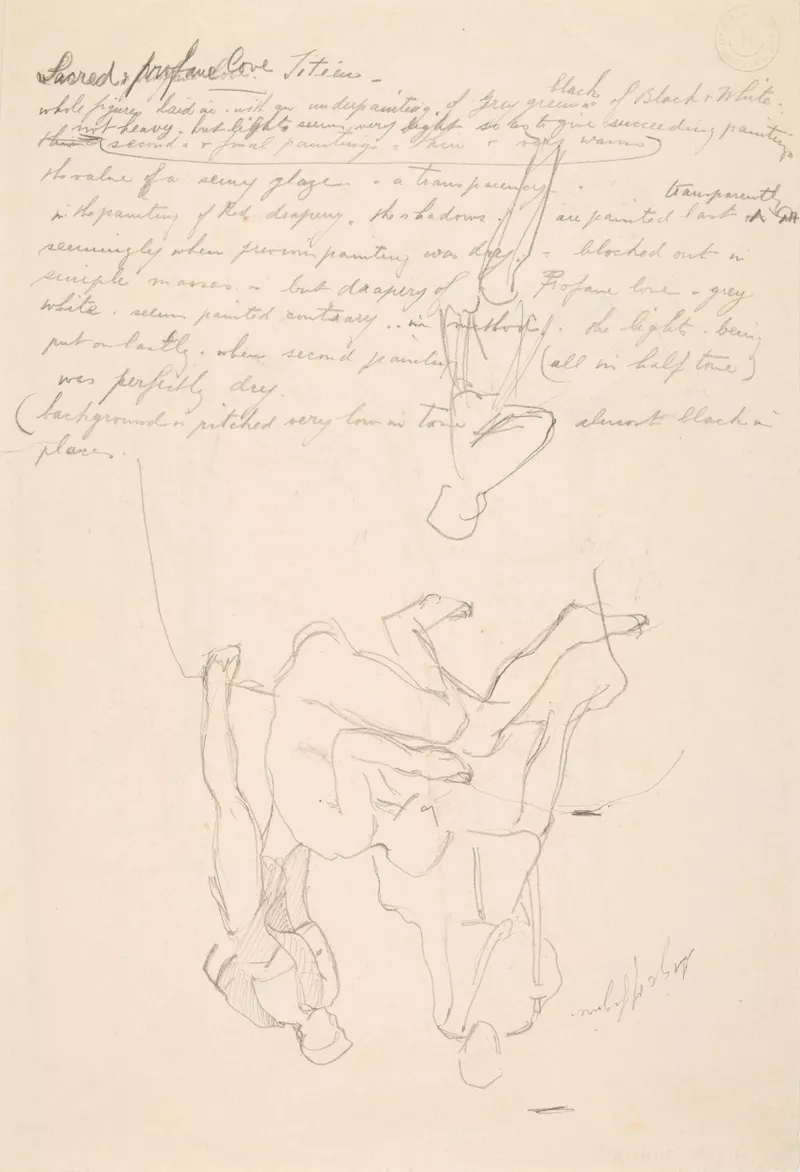 Sacred & profane Love Titien -
black
whole figures laid in with underpainting of Grey green of Black & White.
not heavy. but lights seem very light so as to give succeeding paintings
(second & final paintings - thin & very warm)
the value of a semy glaze - a transparency.
transparently
in the painting of Red drapery. the shadows. are painted last
seemingly when previous painting was dry. - blocked out in
simple masses - but drapery of Profane love - grey
white. seem painted contrary. in method. the lights. being
put on lastly. when second painting (all in half tone)
was perfectly dry.
(background is pitched very low in tone almost black in
places.